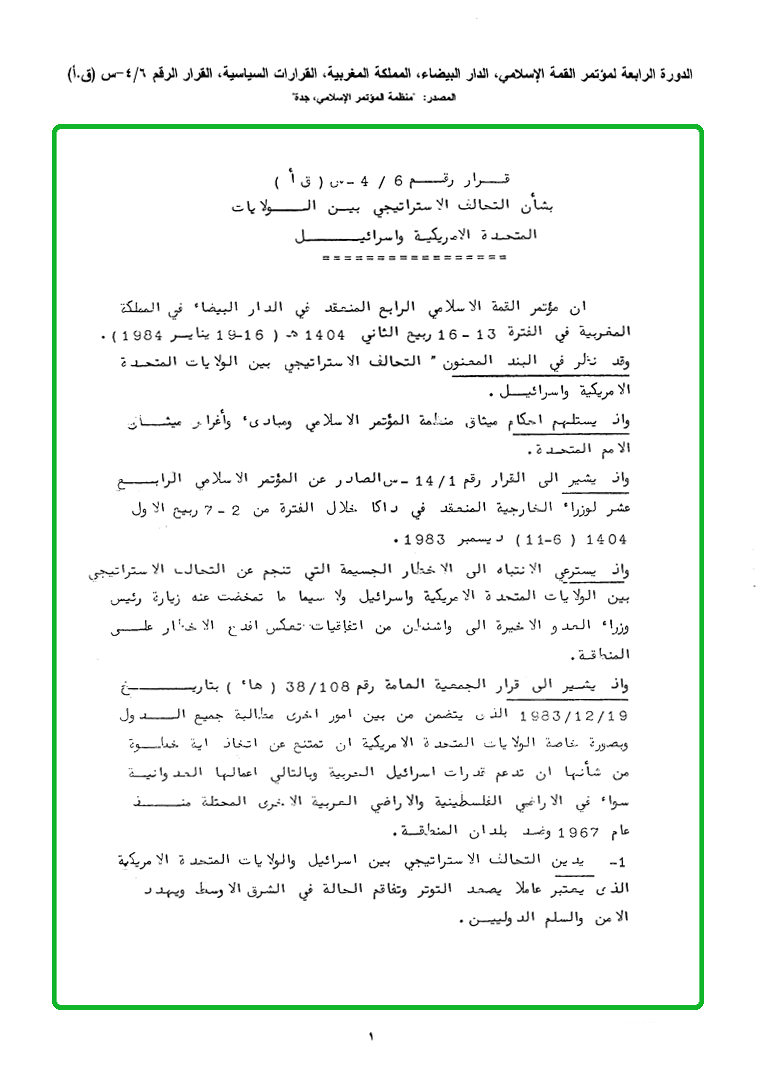 الدورة الرابعة لمؤتمر القمة الإسلامي، الدار البيضاء، المملكة المغربية، القرارات السياسية، القرار الرقم ٤/٦-س (ق.أ)
المصدر: "منظمة المؤتمر الإسلامي، جدة"
قرار رقم 6 / 4 -س ( ق أ )
بشأن التحالف الاستراتيجي بين الولايات
المتحدة الامريكية واسرائيل
=================
ان مؤتمر القمة الاسلامي الرابع المنعقد في الدار البيضاء في المملكة
المغربية في الفترة 13 - 16 ربيع الثاني 1404 هـ ( 16-19 يناير 1984 ) .
وقد نظر في البند المعنون " التحالف الاستراتيجي بين الولايات المتحدة
الامريكية واسرائيل .
واذ يستلهم احكام ميثاق منظمة المؤتمر الاسلامي ومبادىء وأغراض ميثاق
الامم المتحدة .
واذ يشير الى القرار رقم 14/1 -س الصادر عن المؤتمر الاسلامي الرابع
عشر لوزراء الخارجية المنعقد في داكا خلال الفترة من 2 - 7 ربيع الاول
1404 ( 6-11 ) ديسمبر 1983 .
واذ يسترعي الانتباه الى الاخطار الجسيمة التي تنجم عن التحالف الاستراتيجي
بين الولايات المتحدة الامريكية واسرائيل ولا سيما ما تمخضت عنه زيارة رئيس
وزراء العدو الاخيرة الى واشنطن من اتفاقيات تعكس افدح الاخطار على
المنطقة .
واذ يشير الى قرار الجمعية العامة رقم 38/108 ( هاء ) بتاريخ
1983/12/19 الذى يتضمن من بين امور اخرى مطالبة جميع الدول
وبصورة خاصة الولايات المتحدة الامريكية ان تمتنع عن اتخاذ اية خطوة
من شأنها ان تدعم قدرات اسرائيل الحربية وبالتالي اعمالها العدوانية
سواء في الاراضي الفلسطينية والاراضي العربية الاخرى المحتلة منذ
عام 1967 وضد بلدان المنطقة .
1- يدين التحالف الاستراتيجي بين اسرائيل والولايات المتحدة الامريكية
الذى يعتبر عاملا يصعد التوتر وتفاقم الحالة في الشرق الاوسط ويهدد
الامن والسلم الدوليين .
١